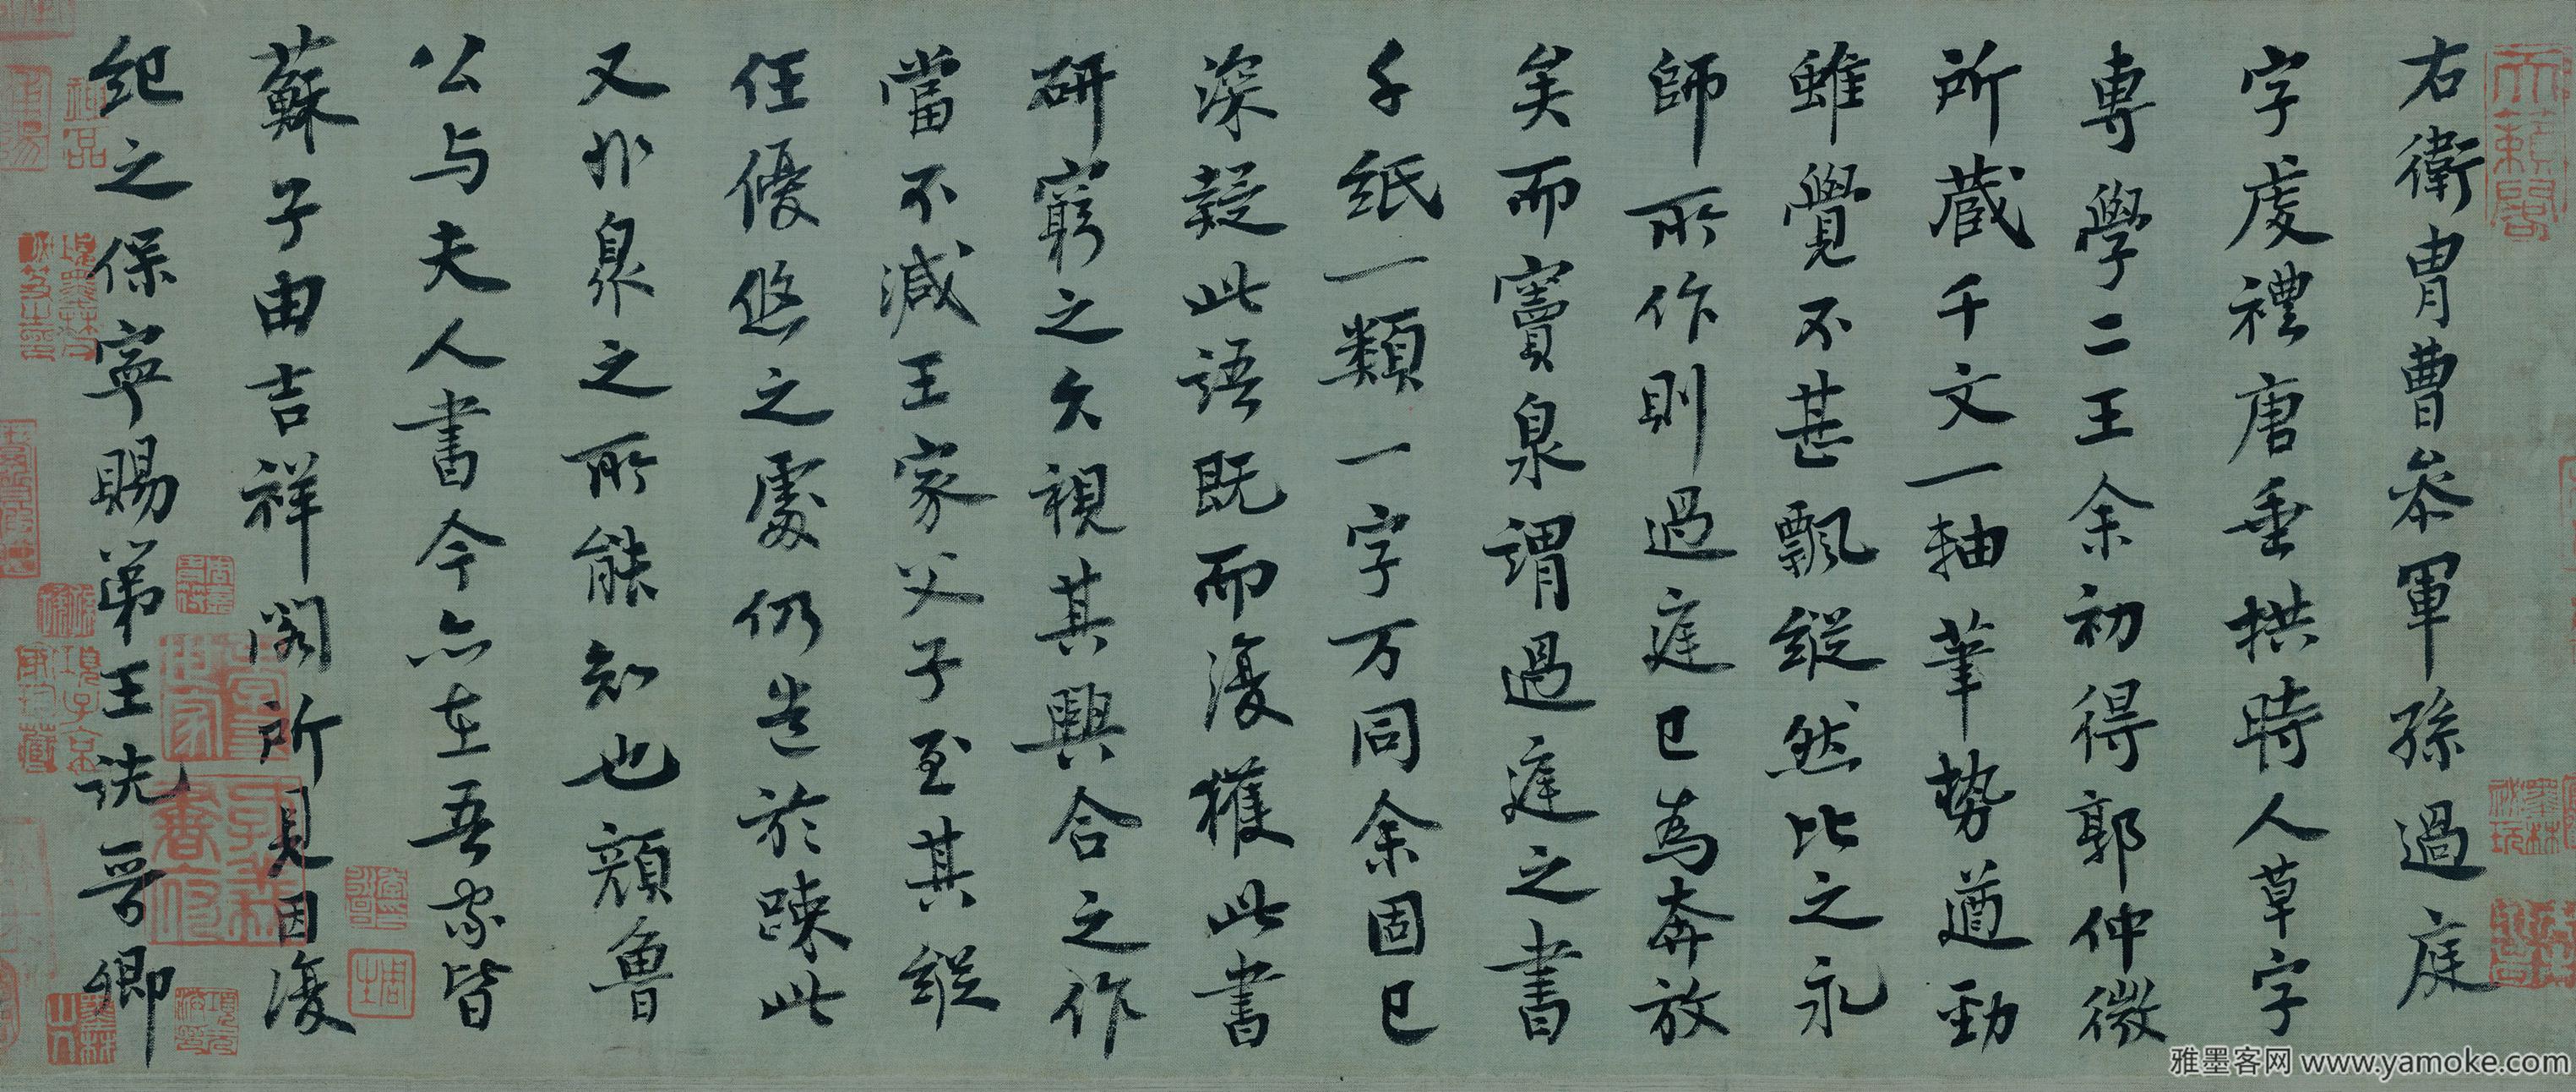 右衛胄曹參軍孫過庭
字虔禮唐垂拱時人草字
專學二王余初得郭仲微
所藏千文一軸筆勢遒勁
雖覺不甚飄縱然比之永
師所作則過庭已為奔放
矣而竇臮謂過庭之書
千紙一類一字万同余固已
深疑此語既而復獲此書
研窮之久視其興合之作
當不減王家父子至其縱
任優悠之處仍造於疎此
又非臮之所能知也顏魯
公与夫人書今亦在吾家皆
蘇子由吉祥閣所見因復
紀之保寧賜第王詵晉卿
雅墨客网 www.yamoke.com